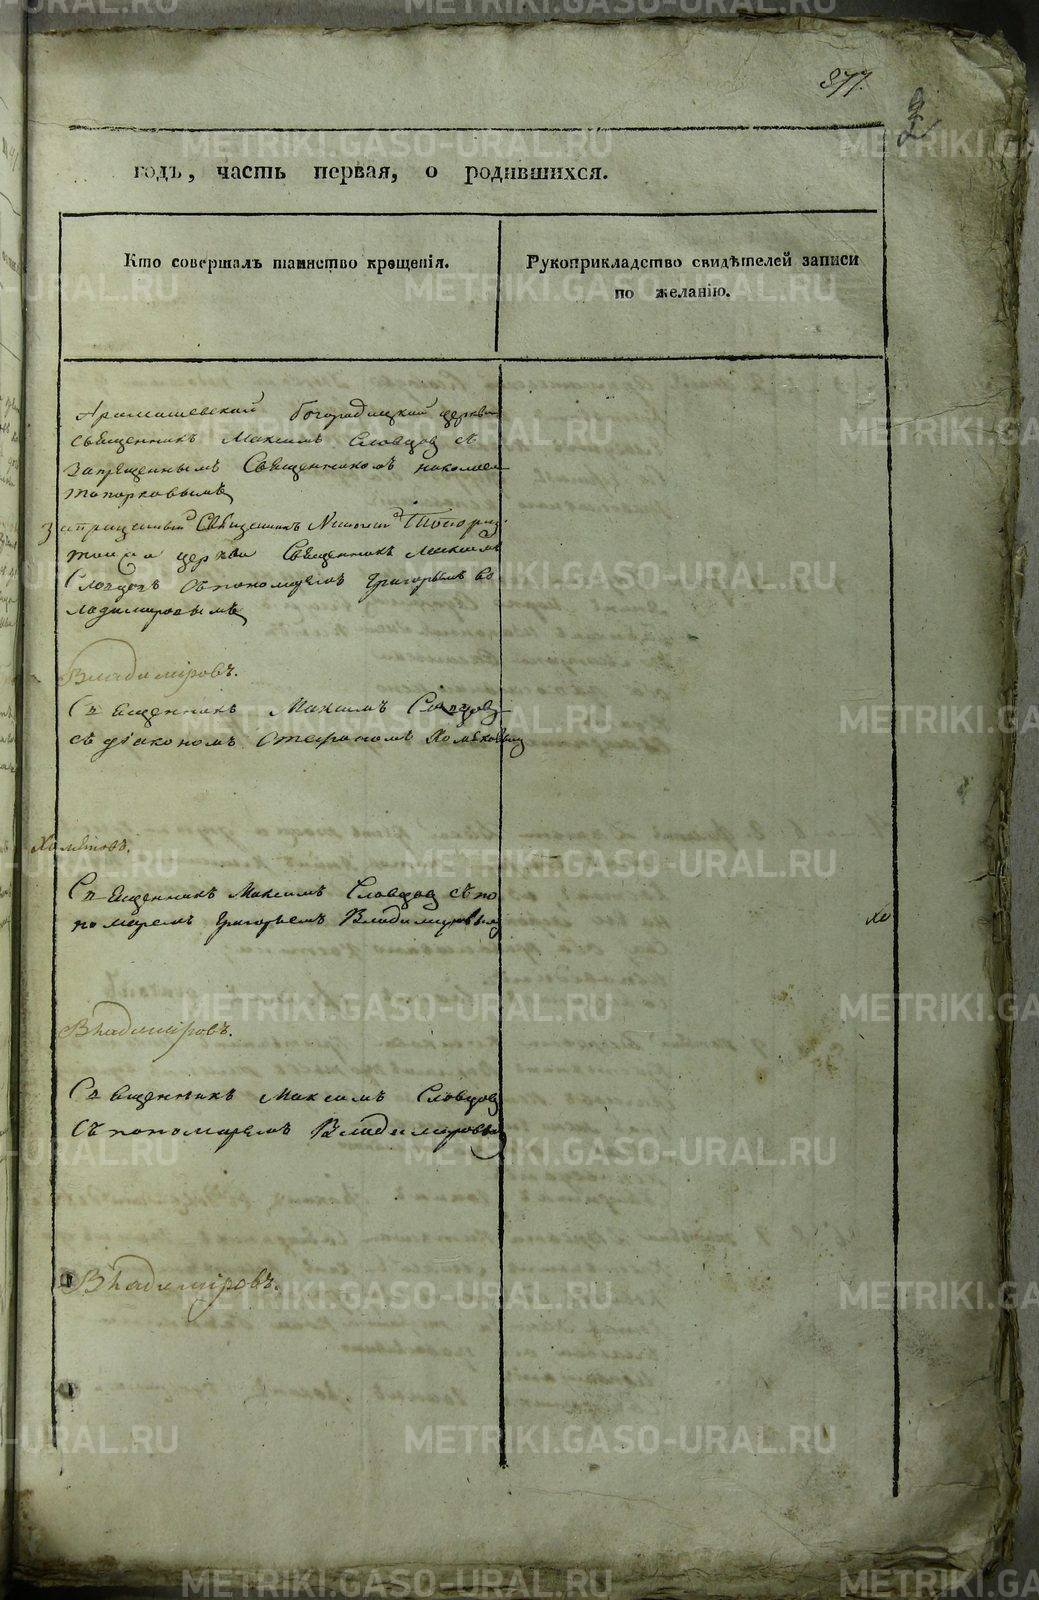 877.
2
годъ, часть первая, о родившихся.
Кто совершалъ таинство крещенія.
Рукоприкладство свидѣтелей записи
по желанію.
Арамашевской Богородицкой церкви
священникъ Максимъ Словцов съ
запрещеннымъ Священником николаем
топорковымъ
запрещенный Священникъ Николай
тоя церкви Священникъ Максимъ
Словцовъ съ пономаремъ Григорьемъ Во
ладимировымъ
Владиміровъ.
Священникъ Максимъ Словцов
съ діакономъ Стефаномъ Хомяковым
Хомяковъ.
Священникъ Максимъ Словцов съ по
номаремъ Григорьемъ Владимировым
Хо
Владиміровъ.
Священникъ Максимъ Словцов
съ пономаремъ Владимировым
Владиміровъ.
METRIKI.GASO-URAL.RU